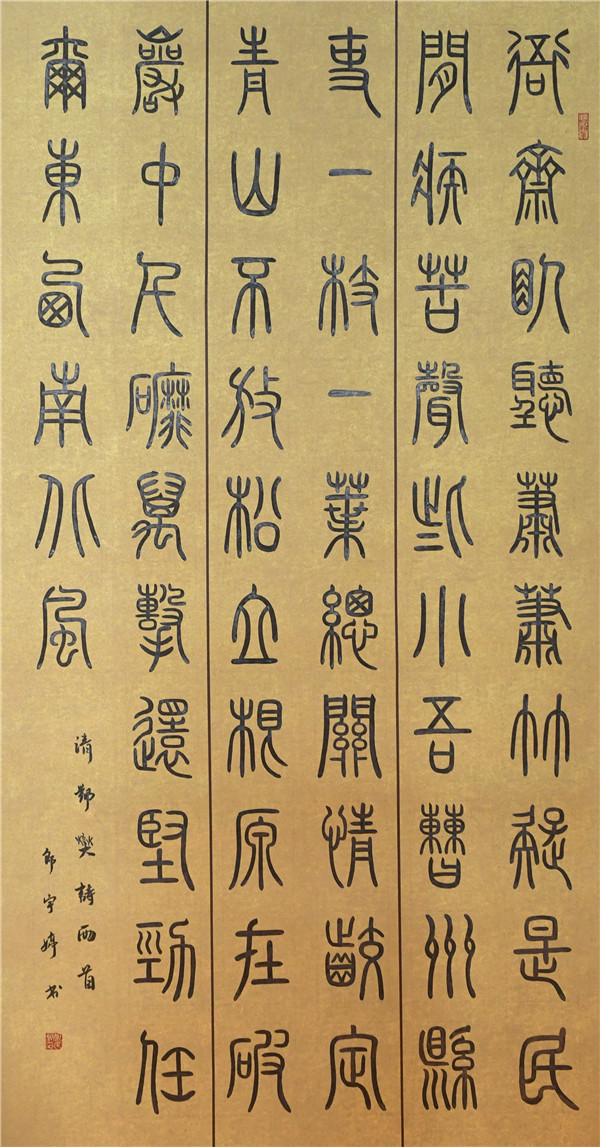 衙齋臥聽蕭蕭竹疑是民
間疾苦聲些小吾曹州縣
吏一枝一葉總關情齩定
青山不放松立根原在破
巖中千磨萬擊還堅勁任
爾東西南北風
清鄭燮詩兩首
郎宇婷书